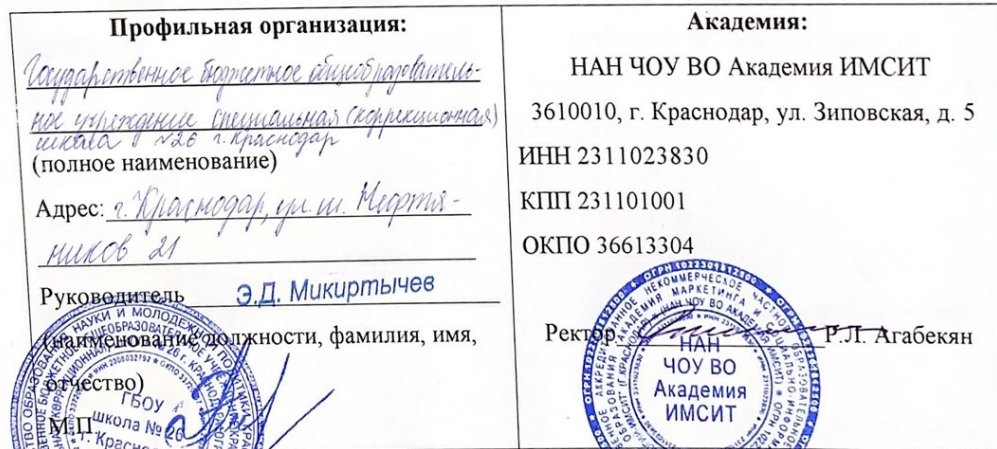 Профильная организация:
Государственное бюджетное общеобразователь-
ное учреждение специальная (коррекционная)
школа №26 г. Краснодар
(полное наименование)
Адрес: г. Краснодар, ул. ш. Нефтя-
ников 21
Руководитель Э.Д. Микиртычев
(наименование должности, фамилия, имя,
отчество)
М.П.
ГБОУ
школа № 26
г. Красно
Академия:
НАН ЧОУ ВО Академия ИМСИТ
3610010, г. Краснодар, ул. Зиповская, д. 5
ИНН 2311023830
КПП 231101001
ОКПО 36613304
Ректор Р.Л. Агабекян
НАН
ЧОУ ВО
Академия
ИМСИТ